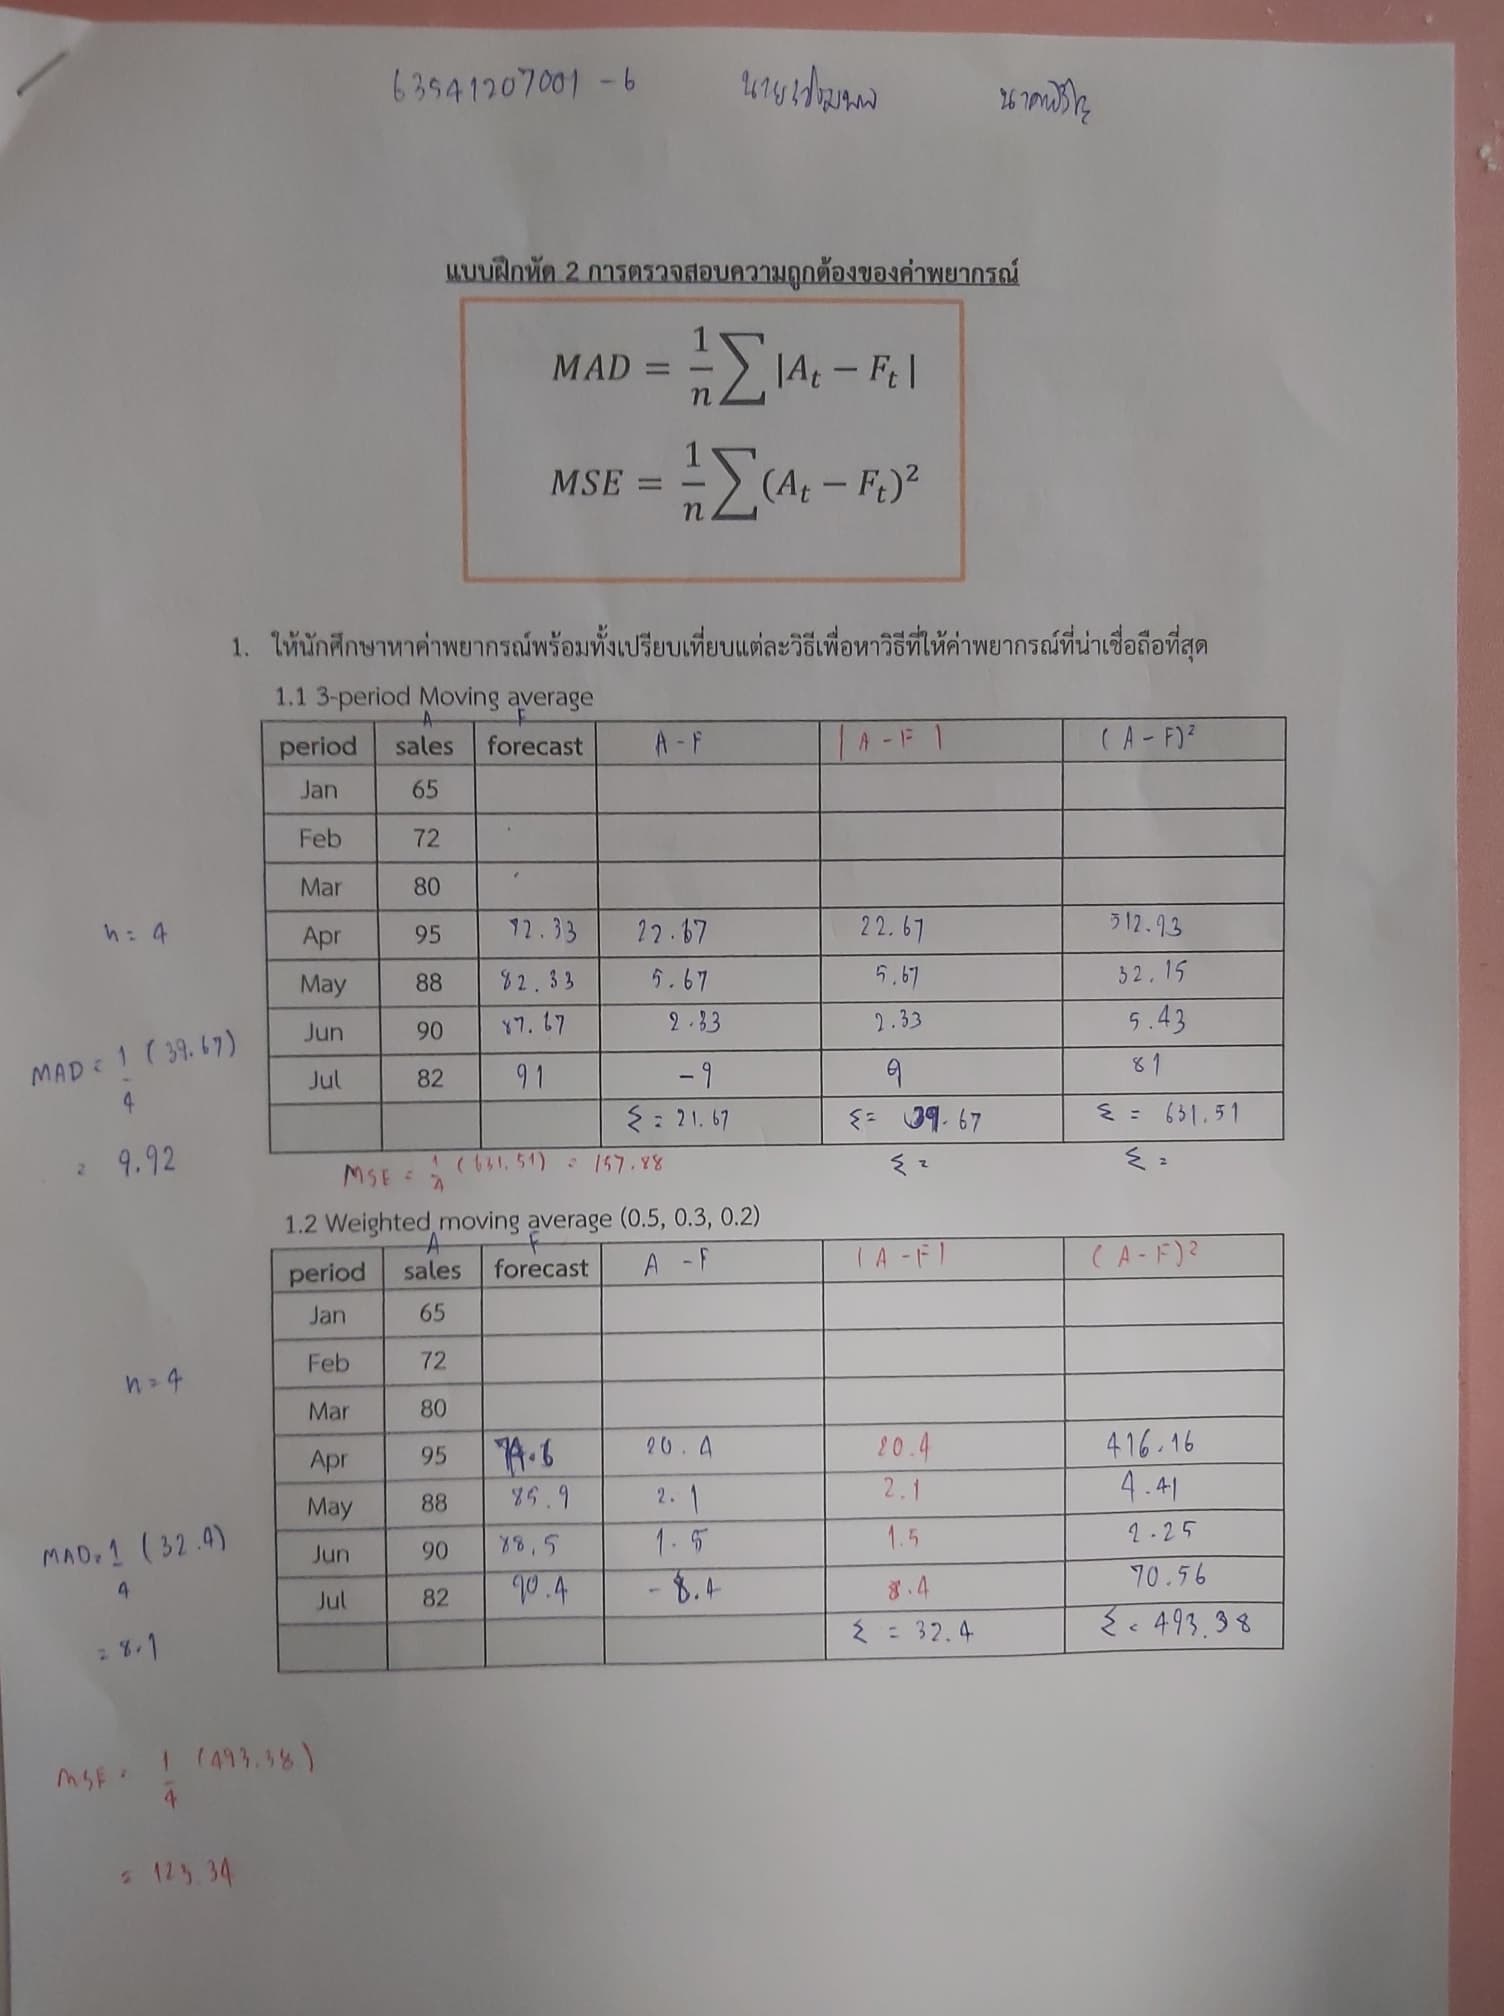 63541207001-6
แบบฝึกหัด 2 การตรวจสอบความถูกต้องของค่าพยากรณ์
MAD = 1/n ∑ |Aₜ − Fₜ|
MSE = 1/n ∑(Aₜ − Fₜ)²
1. ให้นักศึกษาหาค่าพยากรณ์พร้อมทั้งเปรียบเที่ยบแต่ละวิธีเพื่อหาวิธีที่ให้ค่าพยากรณ์ที่น่าเชื่อถือที่สุด
1.1 3-period Moving average
A F
period sales forecast A - F |A - F| (A - F)²
Jan 65
Feb 72
Mar 80
n = 4
Apr 95 72.33 22.67 22.67 512.93
May 88 82.33 5.67 5.67 32.15
Jun 90 87.67 2.33 2.33 5.43
MAD = 1/4 (39.67)
Jul 82 91 -9 9 81
Σ = 21.67 Σ = 39.67 Σ = 631.51
= 9.92
MSE = 1/4 (631.51) = 157.88 Σ = Σ =
1.2 Weighted moving average (0.5, 0.3, 0.2)
A F
period sales forecast A - F |A - F| (A - F)²
Jan 65
Feb 72
n = 4
Mar 80
Apr 95 74.6 20.4 20.4 416.16
May 88 85.9 2.1 2.1 4.41
Jun 90 88.5 1.5 1.5 2.25
MAD = 1/4 (32.4)
Jul 82 90.4 -8.4 8.4 70.56
Σ = 32.4 Σ = 493.38
= 8.1
MSE = 1/4 (493.38)
= 123.34